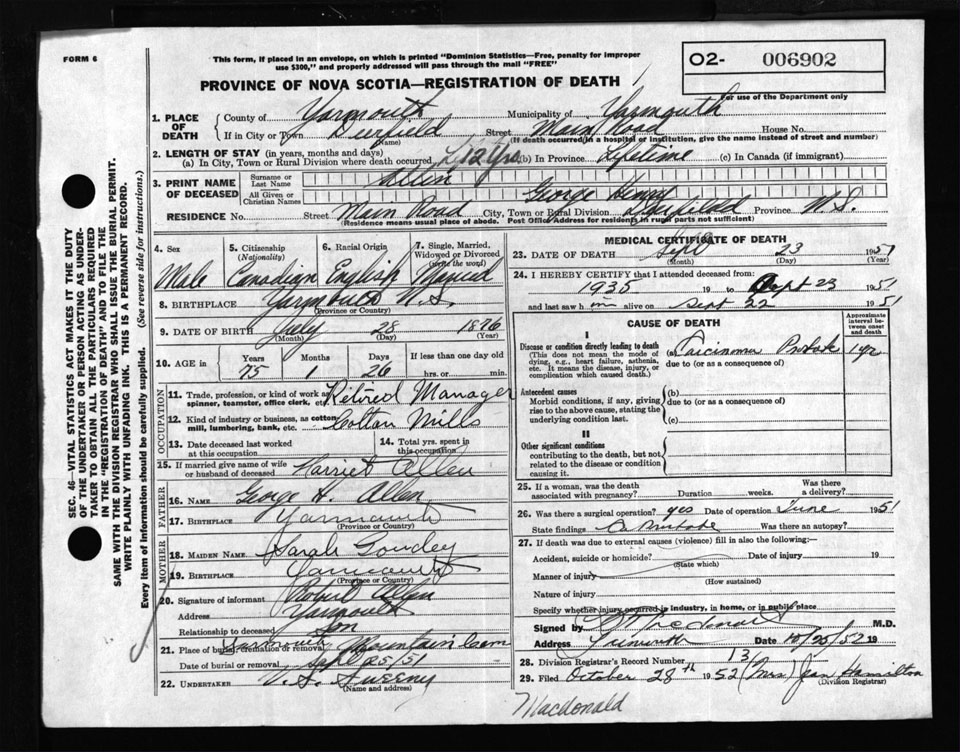 FORM 6
This form, if placed in an envelope, on which is printed "Dominion Statistics—Free, penalty for improper
use $300," and properly addressed will pass through the mail "FREE"
O2- 006902
For use of the Department only
PROVINCE OF NOVA SCOTIA—REGISTRATION OF DEATH
SEC. 46—VITAL STATISTICS ACT MAKES IT THE DUTY
OF THE UNDERTAKER OR PERSON ACTING AS UNDER-
TAKER TO OBTAIN ALL THE PARTICULARS REQUIRED
IN THE "REGISTRATION OF DEATH" AND TO FILE THE
SAME WITH THE DIVISION REGISTRAR WHO SHALL ISSUE THE BURIAL PERMIT.
WRITE PLAINLY WITH UNFADING INK. THIS IS A PERMANENT RECORD.
Every item of Information should be carefully supplied. (See reverse side for instructions.)
1. PLACE OF DEATH County of Yarmouth Municipality of Yarmouth
If in City or Town Deerfield (Name) Street Main Road House No.
(If death occurred in a hospital or institution, give the name instead of street and number)
2. LENGTH OF STAY (in years, months and days)
(a) In City, Town or Rural Division where death occurred 12 yrs (b) In Province Lifetime (c) In Canada (if immigrant)
3. PRINT NAME OF DECEASED Surname or Last Name Allen
All Given or Christian Names George Henry
RESIDENCE No. Street Main Road City, Town or Rural Division Deerfield Province N.S.
(Residence means usual place of abode. Post Office Address for residents in rural parts not sufficient)
4. Sex Male
5. Citizenship (Nationality) Canadian
6. Racial Origin English
7. Single, Married, Widowed or Divorced (write the word) Married
8. BIRTHPLACE Yarmouth N.S.
(Province or Country)
9. DATE OF BIRTH July 28 1876
(Month) (Day) (Year)
10. AGE in Years 75 Months 1 Days 26 If less than one day old hrs. or min.
OCCUPATION
11. Trade, profession, or kind of work as spinner, teamster, office clerk, etc. Retired Manager
12. Kind of industry or business, as cotton mill, lumbering, bank, etc. Cotton Mills
13. Date deceased last worked at this occupation
14. Total yrs. spent in this occupation
15. If married give name of wife or husband of deceased Harriet Allen
FATHER
16. NAME George H. Allen
17. BIRTHPLACE Yarmouth
(Province or Country)
MOTHER
18. MAIDEN NAME Sarah Goudey
19. BIRTHPLACE Yarmouth
(Province or Country)
20. Signature of informant Robert Allen
Address Yarmouth
Relationship to deceased Son
21. Place of burial, cremation or removal Yarmouth Mountain Cem
Date of burial or removal Sept 25/51
22. UNDERTAKER V. S. Sweeny
(Name and address)
MEDICAL CERTIFICATE OF DEATH
23. DATE OF DEATH Sept 23 1951
(Month) (Day)
24. I HEREBY CERTIFY that I attended deceased from:
1935 19 to Sept 23 1951
and last saw him alive on Sept 22 1951
CAUSE OF DEATH
Approximate interval between onset and death
I
Disease or condition directly leading to death
(This does not mean the mode of dying, e.g., heart failure, asthenia, etc. It means the disease, injury, or complication which caused death.)
(a) Carcinoma Prostate 1 yr
due to (or as a consequence of)
Antecedent causes
Morbid conditions, if any, giving rise to the above cause, stating the underlying condition last.
(b)
due to (or as a consequence of)
(c)
II
Other significant conditions
contributing to the death, but not related to the disease or condition causing it.
25. If a woman, was the death associated with pregnancy? Duration weeks. Was there a delivery?
26. Was there a surgical operation? yes Date of operation June 1951
State findings Ca Prostate Was there an autopsy?
27. If death was due to external causes (violence) fill in also the following:—
Accident, suicide or homicide? Date of injury 19
(State which)
Manner of injury
(How sustained)
Nature of injury
Specify whether injury occurred in industry, in home, or in public place
Signed by MacDonald M.D.
Address Yarmouth Date 10/25/52 19
28. Division Registrar's Record Number 131
29. Filed October 28th 1952 (Mrs) Jean Hamilton
(Division Registrar)
Macdonald